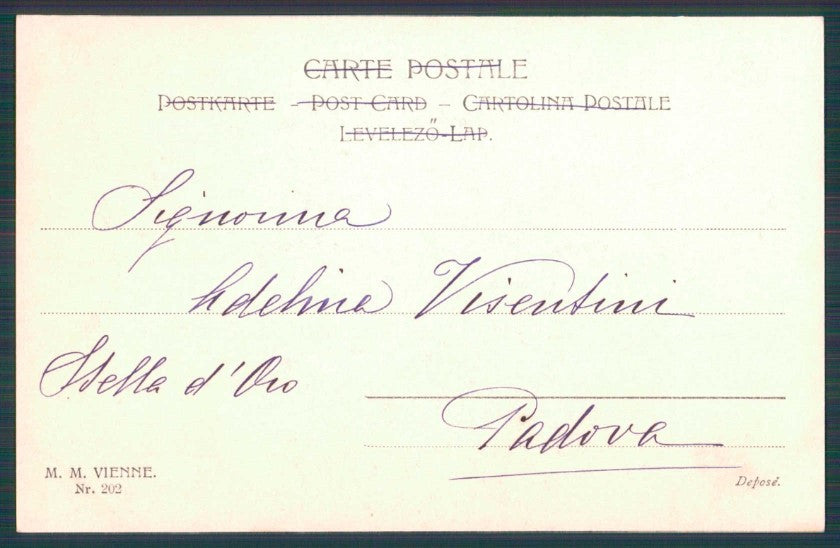 CARTE POSTALE
POSTKARTE – POST CARD – CARTOLINA POSTALE
LEVELEZŐ-LAP.
Signorina
Adelina Visentini
Stella d'Oro
Padova
M. M. VIENNE.
Nr. 202
Deposé.